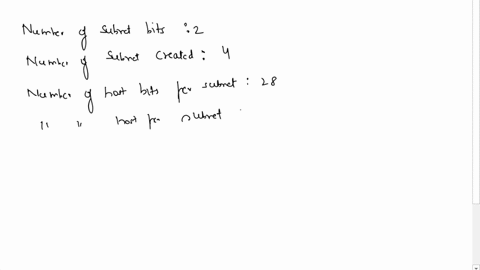 Number of subnet bits : 2
Number of subnet created : 4
Number of host bits per subnet : 28
" " host per subnet